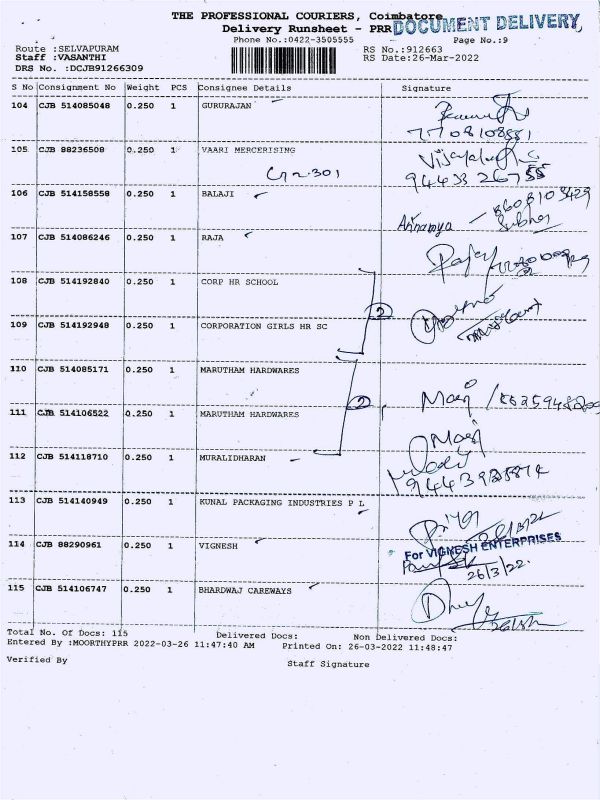 THE PROFESSIONAL COURIERS, Coimbatore
DOCUMENT DELIVERY
Delivery Runsheet - PRR
Phone No.:0422-3505555 Page No.:9
Route :SELVAPURAM RS No.:912663
Staff :VASANTHI RS Date:26-Mar-2022
DRS No. :DCJB91266309
S No Consignment No Weight PCS Consignee Details Signature
104 CJB 514085048 0.250 1 GURURAJAN
105 CJB 88236508 0.250 1 VAARI MERCERISING
106 CJB 514158558 0.250 1 BALAJI
107 CJB 514086246 0.250 1 RAJA
108 CJB 514192840 0.250 1 CORP HR SCHOOL
2
109 CJB 514192948 0.250 1 CORPORATION GIRLS HR SC
110 CJB 514085171 0.250 1 MARUTHAM HARDWARES
2
111 CJB 514106522 0.250 1 MARUTHAM HARDWARES
112 CJB 514118710 0.250 1 MURALIDHARAN
113 CJB 514140949 0.250 1 KUNAL PACKAGING INDUSTRIES P L
114 CJB 88290961 0.250 1 VIGNESH
For VIGNESH ENTERPRISES
26/3/22.
115 CJB 514106747 0.250 1 BHARDWAJ CAREWAYS
Total No. Of Docs: 115 Delivered Docs: Non Delivered Docs:
Entered By :MOORTHYPRR 2022-03-26 11:47:40 AM Printed On: 26-03-2022 11:48:47
Verified By Staff Signature